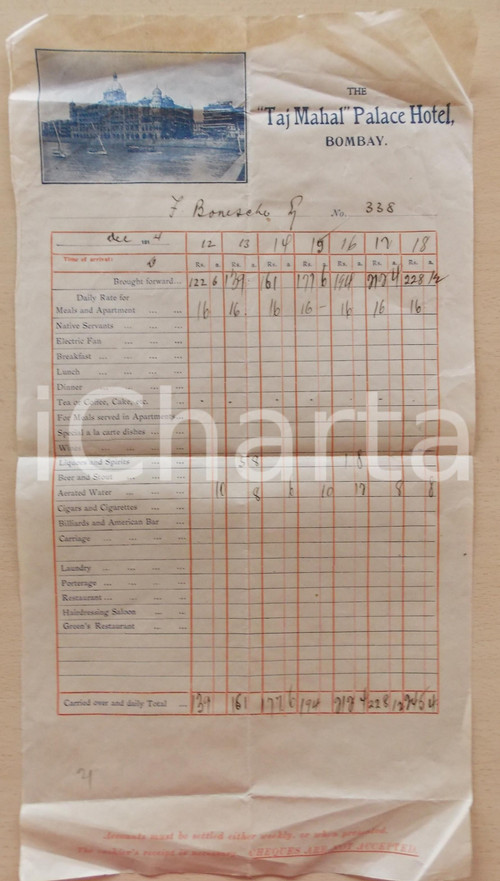 THE
"Taj Mahal" Palace Hotel,
BOMBAY.
No. 338
Dec 1914 12 13 14 15 16 17 18
Time of arrival: Rs. a. Rs. a. Rs. a. Rs. a. Rs. a. Rs. a. Rs. a.
Brought forward... 122 6 139 161 177 6 194 212 4 228 12
Daily Rate for
Meals and Apartment ... ... 16 16 16 16 - 16 16 16
Native Servants ... ...
Electric Fan ... ...
Breakfast ... ... ...
Lunch ... ... ...
Dinner ... ...
Tea or Coffee, Cake, etc. ...
For Meals served in Apartments
Special a la carte dishes ... ...
Wines ... ... ...
Liqueurs and Spirits ... ... 5 8 1 8
Beer and Stout ... ...
Aerated Water ... ... 10 8 6 10 12 8 8
Cigars and Cigarettes ... ...
Billiards and American Bar ...
Carriage ... ... ...
Laundry ... ... ...
Porterage ... ... ...
Restaurant ... ... ...
Hairdressing Saloon ... ...
Green's Restaurant ... ...
Carried over and daily Total ... 139 161 177 6 194 212 4 228 12 245 4
iCharta
Accounts must be settled either weekly, or when presented.
CHEQUES ARE NOT ACCEPTED.